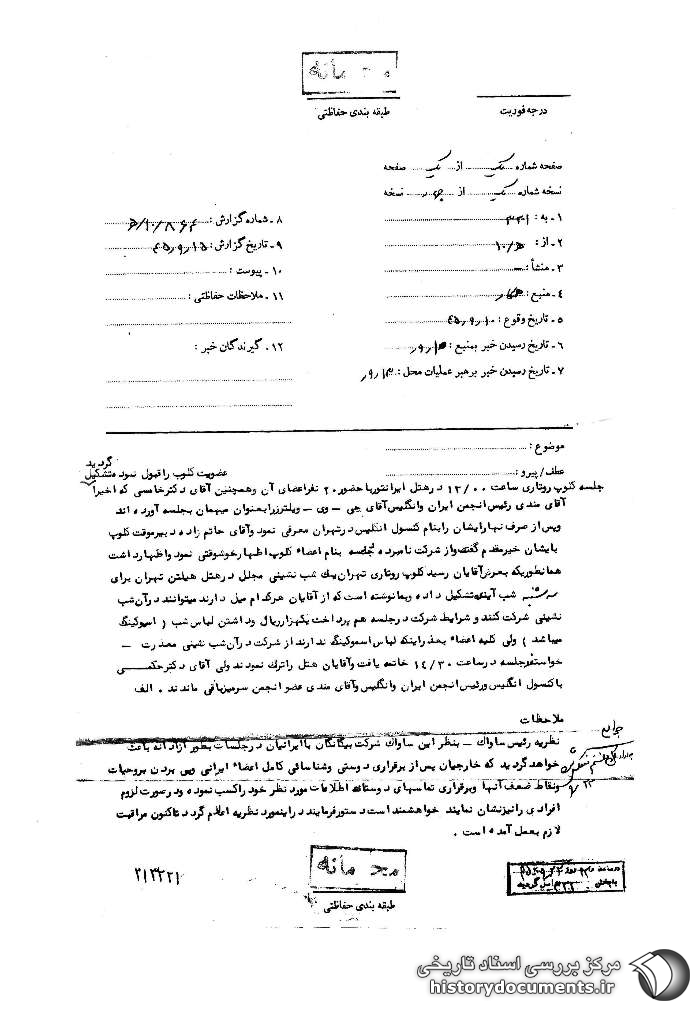 محرمانه
درجه فوریت
طبقه بندی حفاظتی
صفحه شماره یک از یک صفحه
نسخه شماره یک از چهار نسخه
۱ ـ به : ۳۳۱
۲ ـ از : ۵/۱۰
۳ ـ منشأ :
۴ ـ منبع :
۵ ـ تاریخ وقوع : ۴۵٫۹٫۱۰
۶ ـ تاریخ رسیدن خبر بمنبع :
۷ ـ تاریخ رسیدن خبر برهبر عملیات محل : ۹٫۱۳
۸ ـ شماره گزارش : ۵/۱۰/۸۶۴
۹ ـ تاریخ گزارش : ۴۵٫۹٫۱۵
۱۰ ـ پیوست :
۱۱ ـ ملاحظات حفاظتی :
۱۲ ـ گیرندگان خبر :
موضوع :
عطف / پیرو : عضویت کلوپ را قبول نمود متشکیل گردید
جلسه کلوپ روتاری ساعت ۱۲/۰۰ در هتل ایرانتور با حضور ۲۰ نفر اعضای آن و همچنین آقای دکتر خامسی که اخیرا
آقای مندی رئیس انجمن ایران وانگلیس آقای جی ـ وی ـ ویلترز را بعنوان میهمان بجلسه آورده اند
وپس از صرف نهار ایشان را بنام کنسول انگلیس در تهران معرفی نمود وآقای حاتم زاده دبیر موقت کلوپ
بایشان خیر مقدم گفته و از شرکت نامبرده بجلسه بنام اعضاء کلوپ اظهار خوشوقتی نمود واظهار داشت
همانطوریکه بعرض آقایان رسید کلوپ روتاری تهران یك شب نشینی مجلل در هتل هیلتن تهران برای
سه شنبه شب آینده تشکیل داده وبما نوشته است که از آقایان هر کدام میل دارند میتوانند در آن شب
نشینی شرکت کنند و شرایط شرکت در جلسه هم پرداخت یکهزار ریال و داشتن لباس شب ( اسموکینگ
میباشد ) ولی کلیه اعضاء بعذر اینکه لباس اسموکینگ ندارند از شرکت در آن شب نشینی معذرت ـ
خواستند جلسه در ساعت ۱۴/۳۰ خاتمه یافت وآقایان هتل را ترك نمودند ولی آقای دکتر حکمی
با کنسول انگلیس ورئیس انجمن ایران وانگلیس وآقای مندی عضو انجمن سرمیز باقی ماندند . الف
ملاحظات
نظریه رئیس ساواك ـ بنظر این ساواك شرکت بیگانگان با ایرانیان در جلسات بطور آزادانه باعث
خواهد گردید که خارجیان پس از برقراری دوستی وشناسائی کامل اعضاء ایرانی وپی بردن بروحیات
ونقاط ضعف آنها وبرقراری تماسهای دوستانه اطلاعات مورد نظر خود را کسب نموده ودر صورت لزوم
افرادی را نیز نشان نمایند خواهشمند است دستور فرمایند در اینمورد نظریه اعلام گردد تاکنون مراقبت
لازم بعمل آمده است .
محرمانه
طبقه بندی حفاظتی
۳۱۳۲۲۱
مرکز بررسی اسناد تاریخی
historydocuments.ir